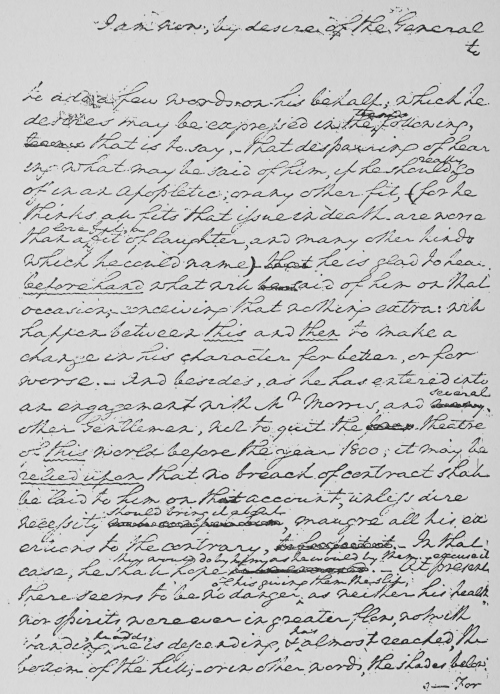 I am now, by desire of the General
to
to add a few words on his behalf; which he
desires may be expressed in the following,
that is to say,— that despairing of hear
ing what may be said of him, if he should really go
of in an apopletic, or any other fit, (for he
thinks all fits that issue in death are worse
than a love fit, a fit of laughter, and many other kinds
which he could name) he is glad to hear
beforehand what will be said of him on that
occasion; conceiving that nothing extra: will
happen between this and then to make a
change in his character for better, or for
worse.— And besides, as he has entered into
an engagement with Mr Morris, and several
other Gentlemen, not to quit the theatre
of this world before the year 1800; it may be
relied upon that no breach of contract shall
be laid to him on that account, unless dire
necessity should bring it about, maugre all his ex
ertions to the contrary.— In that
case, he shall hope they would do by him as he would do by them, excuse it
.— At present
there seems to be no danger of his giving them the slip, as neither his health
nor spirits, were ever in greater flow, notwith
standing, he adds, he is descending, & has almost reached the
bottom of the hill;—or in other words, the shades below
.— For